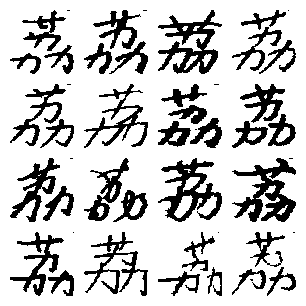 荔荔荔荔
荔荔荔荔
荔荔荔荔
荔荔荔荔